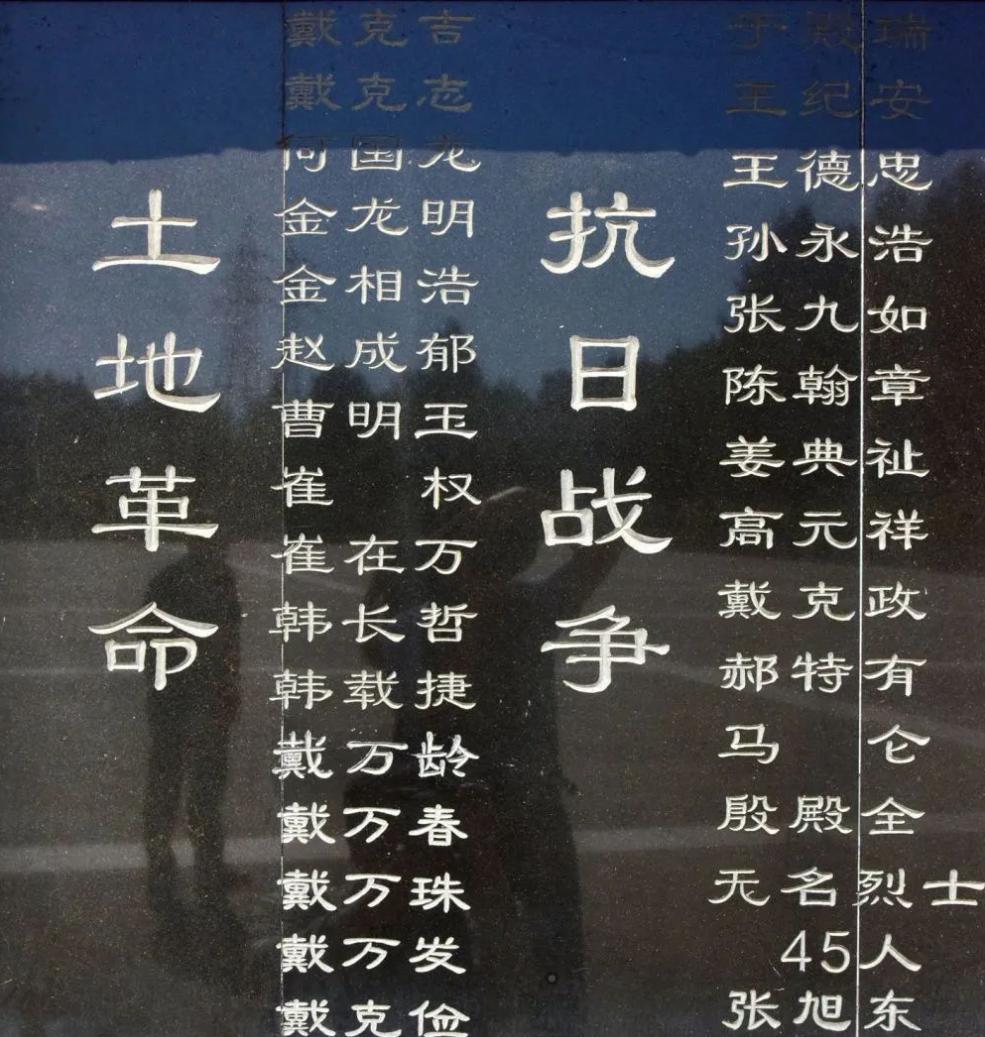 土地革命
戴克吉
戴克志
何国龙
金龙明
金相浩
赵成郁
曹明玉
崔权
崔在万
韩长哲
韩载捷
戴万龄
戴万春
戴万珠
戴万发
戴克俭
抗日战争
于殿瑞
王纪安
王德忠
孙永浩
张九如
陈翰章
姜典祉
高元祥
戴克政
郝特有
马仑
殷殿全
无名烈士
45人
张旭东